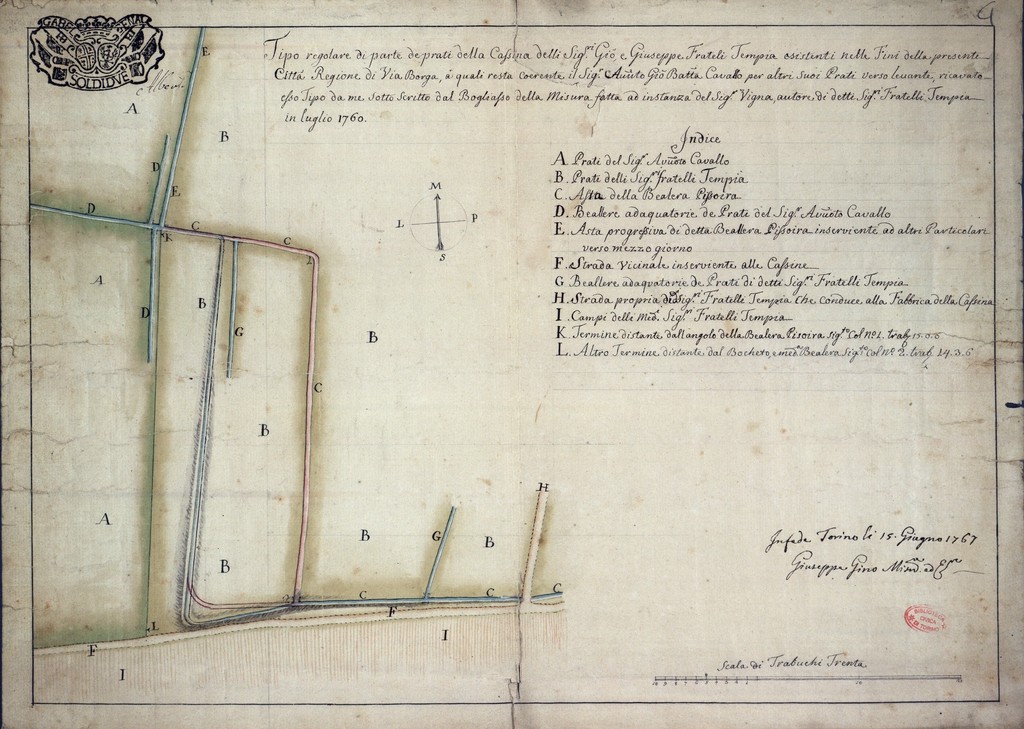 GABE SENAL
SOLDI DVE
Tipo regolare di parte de prati della Cassina delli Sig.ri Giô, e Giuseppe Frateli Tempia esistenti nelle Fini della presente
Città Regione di Via Borga, à quali resta Coerente il Sig.r Auuõto Giõ Batta Cavallo per altri Suoi Prati verso levante, ricavato
esso Tipo da me sotto Scritto dal Bogliasso della Misura fatta ad instanza del Sig.r Vigna, autore di detti Sig.ri Fratelli Tempia
in luglio 1760.
Indice
A Prati del Sig.r Auuõto Cavallo
B. Prati delli Sig.ri fratelli Tempia
C. Asta della Bealera Pissoira
D. Beallere adaquatorie de Prati del Sig.r Auuõto Cavallo
E. Asta progressiva di detta Beallera Pissoira inserviente ad altri Particolari
verso mezzo giorno
F. Strada Vicinale inserviente alle Cassine
G Beallere adaqvatorie de Prati di detti Sig.ri Fratelli Tempia
H. Strada propria di d.i Sig.ri Fratelli Tempia che conduce alla Fabbrica della Cassina
I. Campi delli Med.i Sig.ri Fratelli Tempia
K. Termine distante dall'angolo della Bealera Pisoira sig.to Col n.o 1. trab. 15.0.6
L. Altro Termine distante dal Bocheto, e med.a Bealera Sig.to Col N.o 2. trab. 14.3.6
M
L P
S
E
A
B
D
E
D
K
C
C
A
B
D
G
B
C
B
A
H
B
G
B
B
C
C
C
F
L
F
I
I
Infede Torino li 15. Giugno 1767
Giuseppe Gino
BIBLIOTECA
CIVICA
DI TORINO
Scala di Trabuchi Trenta